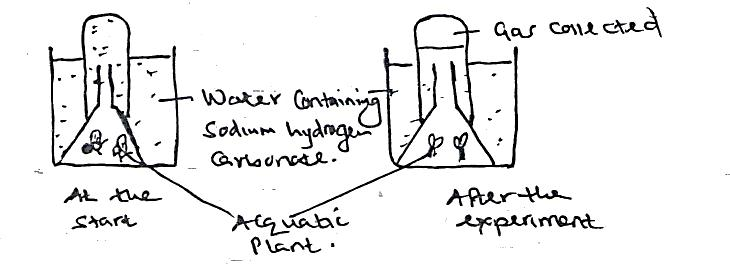 Gas collected
Water Containing
Sodium hydrogen
Carbonate.
At the
Start
Acquatic
Plant.
After the
experiment